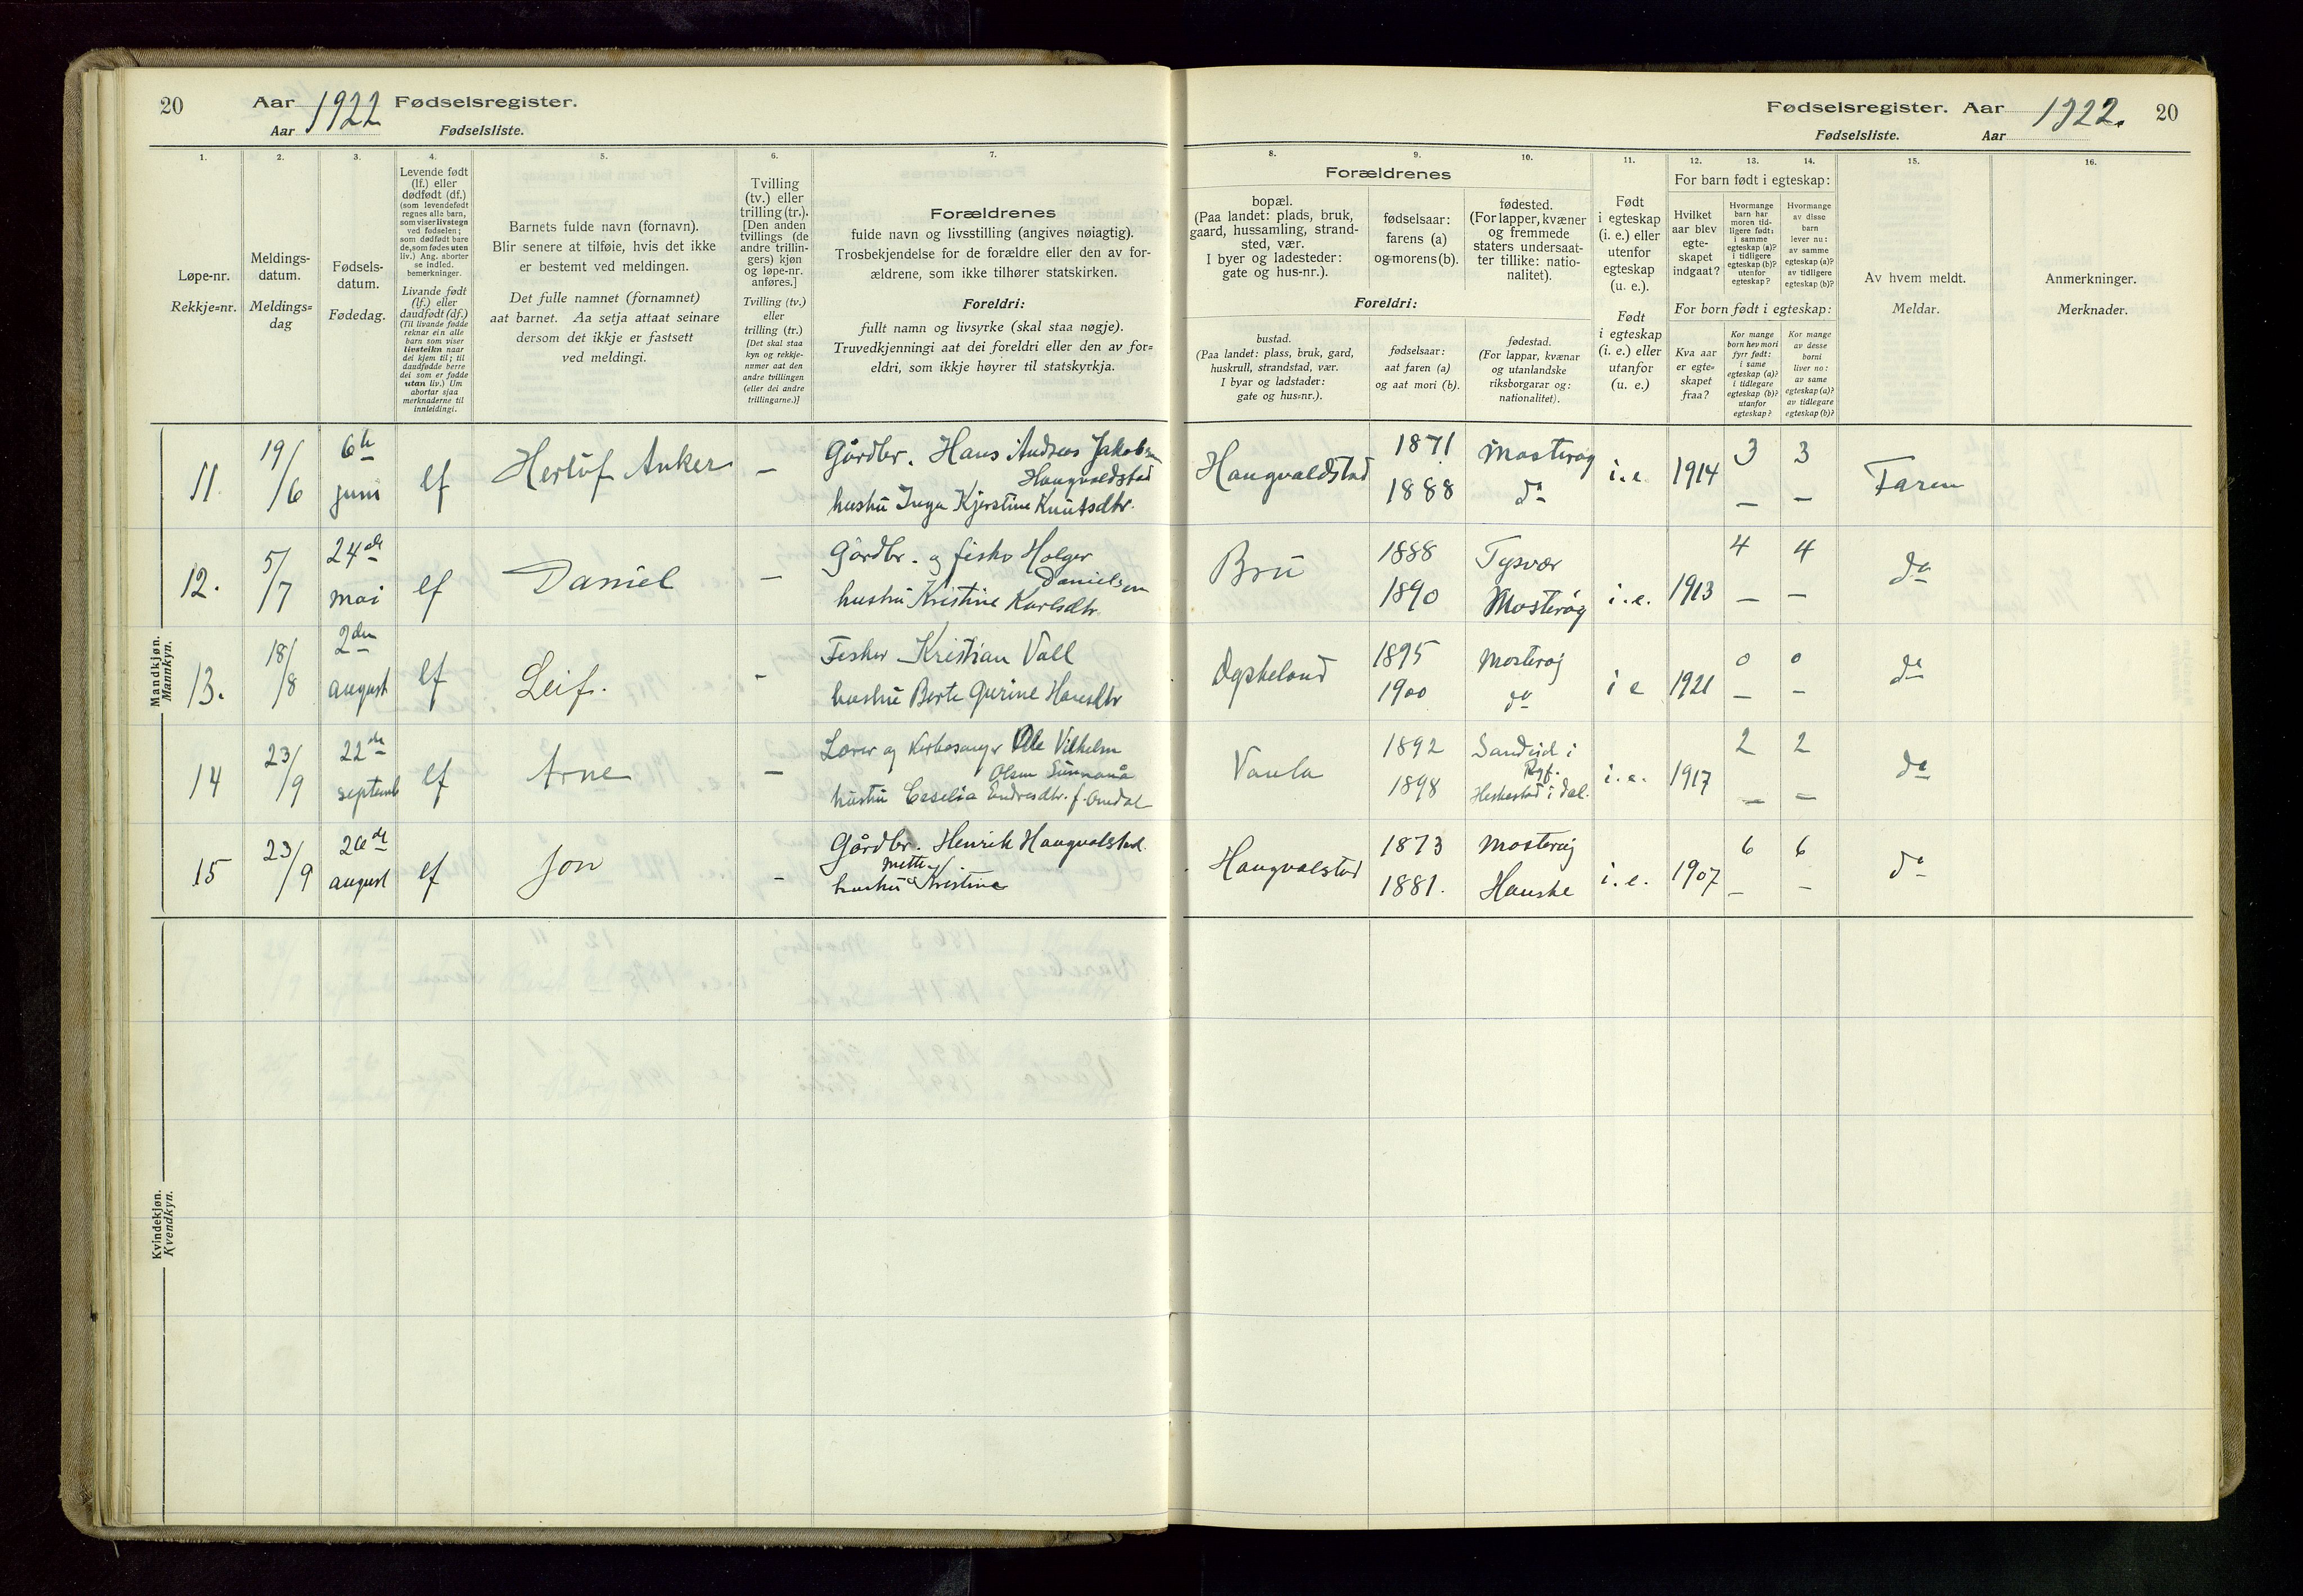 20
Aar 1922 Fødselsregister.
Aar Fødselsliste.
1.
Løpe-nr.
Rekkje=nr.
2.
Meldings-
datum.
Meldings=
dag
3.
Fødsels-
datum.
Fødedag.
4.
Levende født
(lf.) eller
dødfødt (df.)
(som levendefødt
regnes alle barn,
som viser livstegn
ved fødselen;
som dødfødt bare
de, som fødes uten
liv.) Ang. aborter
se indled.
bemerkninger.
Livande født
(lf.) eller
daudfødt (df.)
(Til livande fødde
reknar ein alle
barn som viser
livsteikn naar
dei kjem til; til
daudfødde berre
dei som er fødde
utan liv.) Um
abortar sjaa
merknaderne til
innleidingi.
5.
Barnets fulde navn (fornavn).
Blir senere at tilføie, hvis det ikke
er bestemt ved meldingen.
Det fulle namnet (fornamnet)
aat barnet. Aa setja attaat seinare
dersom det ikkje er fastsett
ved meldingi.
6.
Tvilling
(tv.) eller
trilling (tr.).
[Den anden
tvillings (de
andre trillin-
gers) kjøn
og løpe-nr.
anføres.]
Tvilling (tv.)
eller
trilling (tr.)
[Det skal staa
kyn og rekkje-
numer aat den
andre tvillingen
(eller dei andre
trillingarne.)]
7.
Forældrenes
fulde navn og livsstilling (angives nøiagtig).
Trosbekjendelse for de forældre eller den av for-
ældrene, som ikke tilhører statskirken.
Foreldri:
fullt namn og livsyrke (skal staa nøgje).
Truvedkjenningi aat dei foreldri eller den av for=
eldri, som ikkje høyrer til statskyrkja.
Fødselsregister. Aar 1922. 20
Fødselsliste. Aar
Forældrenes
8.
bopæl.
(Paa landet: plads, bruk,
gaard, hussamling, strand-
sted, vær.
I byer og ladesteder:
gate og hus-nr.).
9.
fødselsaar:
farens (a)
og morens (b).
10.
fødested.
(For lapper, kvæner
og fremmede
staters undersaat-
ter tillike: natio-
nalitet).
Foreldri:
bustad.
(Paa landet: plass, bruk, gard,
huskrull, strandstad, vær.
I byar og ladstader:
gate og hus=nr.).
fødselsaar:
aat faren (a)
og aat mori (b).
fødestad.
(For lappar, kvænar
og utanlandske
riksborgarar og:
nationalitet).
11.
Født
i egteskap
(i. e.) eller
utenfor
egteskap
(u. e.).
Født
i egteskap
(i. e.) eller
utanfor
(u. e.)
12. 13. 14.
For barn født i egteskap:
Hvilket
aar blev
egte-
skapet
indgaat?
Hvormange
barn har
moren tid-
ligere født:
i samme
egteskap (a)?
i tidligere
egteskap (b)?
utenfor
egteskap?
Hvormange
av disse
barn
lever nu:
av samme
egteskap (a)?
av tidligere
egteskap (b)?
For born født i egteskap:
Kva aar
er egte=
skapet
fraa?
Kor mange
born hev mori
fyrr født:
i same
egteskap (a)?
i tidlegare
egteskap (b)?
utanfor
egteskap?
Kor mange
av desse
borni
liver no:
av same
egteskap (a)?
av tidlegare
egteskap (b)?
15.
Av hvem meldt.
Meldar.
16.
Anmerkninger.
Merknader.
Mandkjøn.
Mannkyn.
11. 19/6 6te juni lf Herlof Anker — Gårdbr. Hans Andreas Jakobsen Haugvaldstad
hustru Inga Kjerstine Knutsdtr.
Haugvaldstad 1871 Mosterøy i.e. 1914 3 3 Faren
1888 do — —
12. 5/7 24de mai lf Daniel — Gårdbr. og fisker Holger Danielsen
hustru Kristine Karlsdtr.
Bru 1888 Tysvær 4 4 do
1890 Mosterøy i.e. 1913 — —
13. 18/8 2den august lf Leif. - Fisker Kristian Vall
hustru Berte Gurine Hansdtr
1895 Mosterøy 0 0 do
1900 do i e 1921 — —
14 23/9 22de septemb lf Arne — Lærer og Kirkesanger Ole Vilhelm
Olsen Sunnanå
hustru Ceselia Endresdtr. f. Omdal
Vaula 1892 Sandeid i Ryf. i.e. 1917 2 2 do
1898 Heskestad i Dal. — —
15 23/9 26de august lf Jon - Gårdbr. Henrik Haugvalstad.
hustru Mette Kristine
Haugvalstad 1873 Mosterøy 6 6 do
1881. Hauske i.e. 1907 — —
Kvindekjøn.
Kvendkyn.